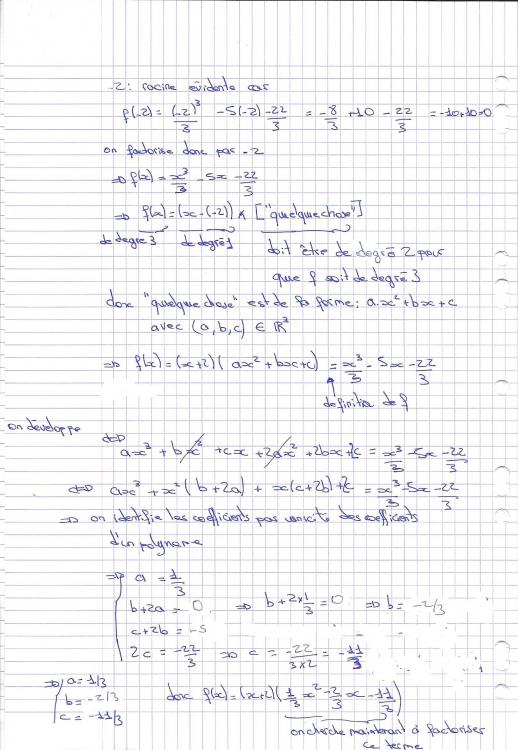 -2 : racine évidente car
f(-2) = (-2)³/3 - 5(-2) - 22/3 = -8/3 + 10 - 22/3 = -10+10=0
on factorise donc par -2
⇒ f(x) = x³/3 - 5x - 22/3
⇒ f(x) = (x-(-2)) × ["quelque chose"]
de degré 3 de degré 1 doit être de degré 2 pour
que f soit de degré 3
donc "quelque chose" est de la forme : ax² + bx + c
avec (a,b,c) ∈ ℝ³
⇒ f(x) = (x+2)(ax² + bx + c) = x³/3 - 5x - 22/3
définition de f
on développe
⇔ ax³ + bx² + cx + 2ax² + 2bx + 2c = x³/3 - 5x - 22/3
⇔ ax³ + x²(b+2a) + x(c+2b) + 2c = x³/3 - 5x - 22/3
⇒ on identifie les coefficients par unicité des coefficients
d'un polynome
⇒ a = 1/3
b+2a = 0 ⇒ b + 2×1/3 = 0 ⇒ b = -2/3
c+2b = -5
2c = -22/3 ⇒ c = -22/(3×2) = -11/3
⇒ a = 1/3
b = -2/3 donc f(x) = (x+2)(1/3 x² - 2/3 x - 11/3)
c = -11/3
on cherche maintenant à factoriser
ce terme